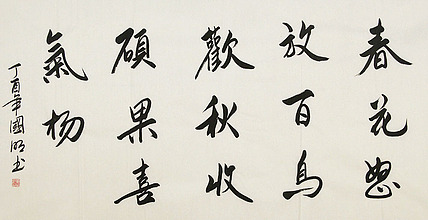 春花怒
放百鳥
歡秋收
碩果喜
氣杨
丁酉年國明书